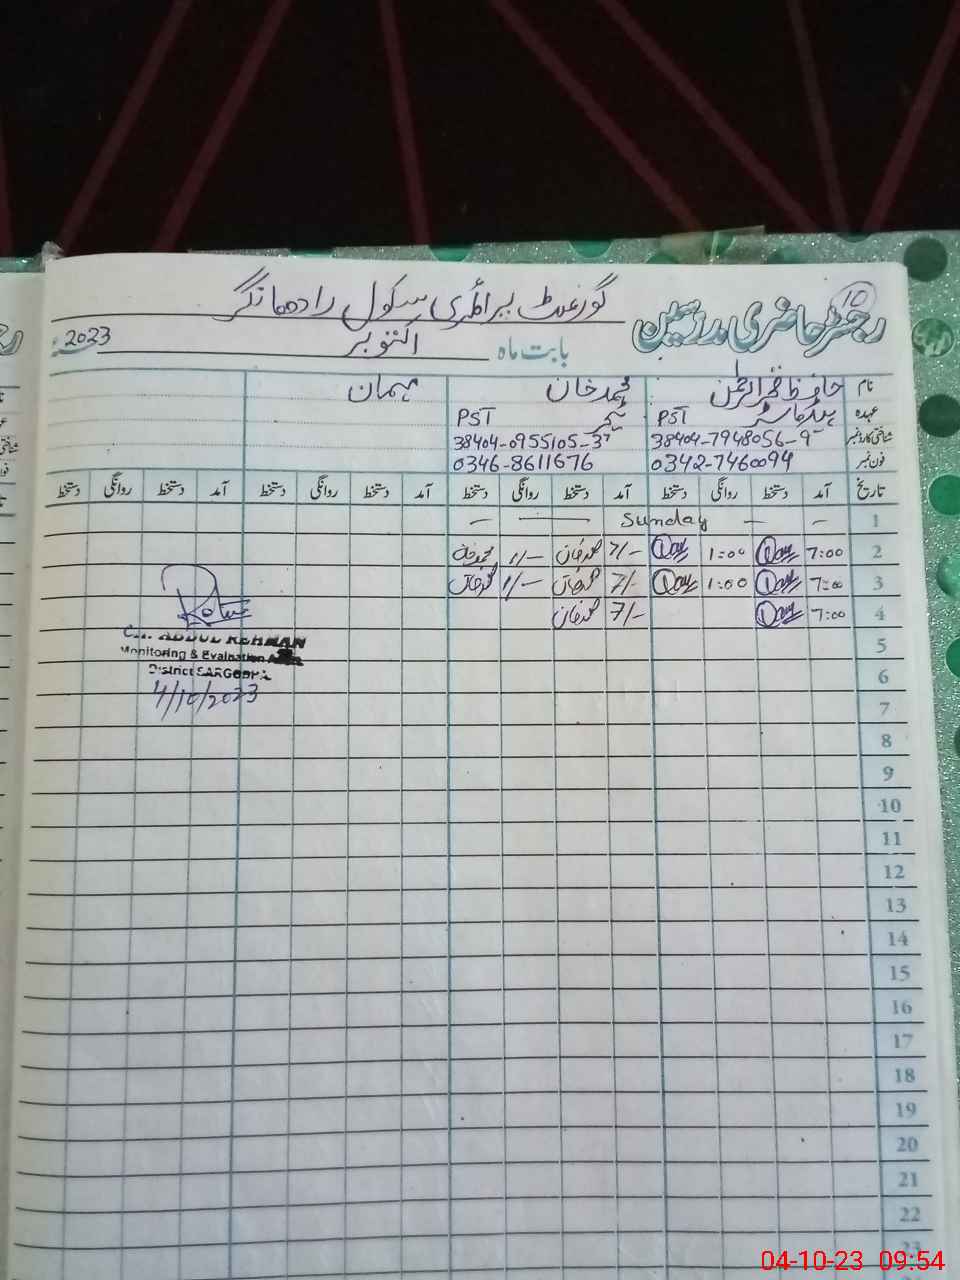 10
رجسٹر حاضری مدرسین گورنمنٹ پرائمری سکول رادھا نگر
بابت ماہ اکتوبر 2023ء
نام حافظ ظفر الرحمٰن محمد خان مہمان
عہدہ ہیڈ ماسٹر PST ٹیچر PST
شناختی کارڈ نمبر 38404-7948056-9 38404-0955105-3
فون نمبر 0342-7460094 0346-8611676
تاریخ آمد دستخط روانگی دستخط آمد دستخط روانگی دستخط آمد دستخط روانگی دستخط آمد دستخط روانگی دستخط
1 — — Sunday — —
2 7:00 1:00 7/- محمد خان 1/- محمد خان
3 7:00 1:00 7/- محمد خان 1/- محمد خان
4 7:00 7/- محمد خان
5
6
7
8
9
10
11
12
13
14
15
16
17
18
19
20
21
22
23
CH. ABDUL REHMAN
Monitoring & Evaluation
District SARGODHA
4/10/2023
04-10-23 09:54